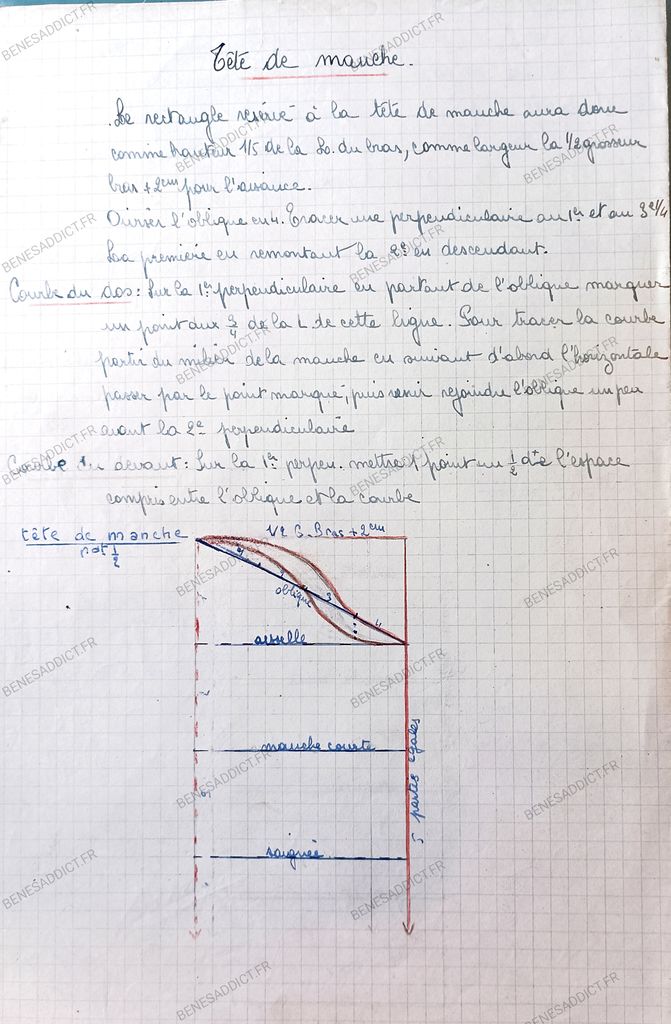 Tête de manche.
Le rectangle réservé à la tête de manche aura donc
comme hauteur 1/5 de la Lo. du bras, comme largeur la 1/2 grosseur
bras + 2cm pour l'aisance.
Diviser l'oblique en 4. Tracer une perpendiculaire au 1er et au 3e 1/4
La première en remontant la 2e en descendant.
Courbe du dos : Sur la 1re perpendiculaire en partant de l'oblique marquer
un point aux 3/4 de la L de cette ligne. Pour tracer la courbe
partir du milieu de la manche en suivant d'abord l'horizontale
passer par le point marqué, puis venir rejoindre l'oblique un peu
avant la 2e perpendiculaire
Courbe du devant : Sur la 1re perpen. mettre 1 point au 1/2 de l'espace
compris entre l'oblique et la courbe
tête de manche
pat 1/2
1/2 G. Bras + 2cm
oblique
3
4
aisselle
manche courte
5 parties égales
saignée
BENESADDICT.FR